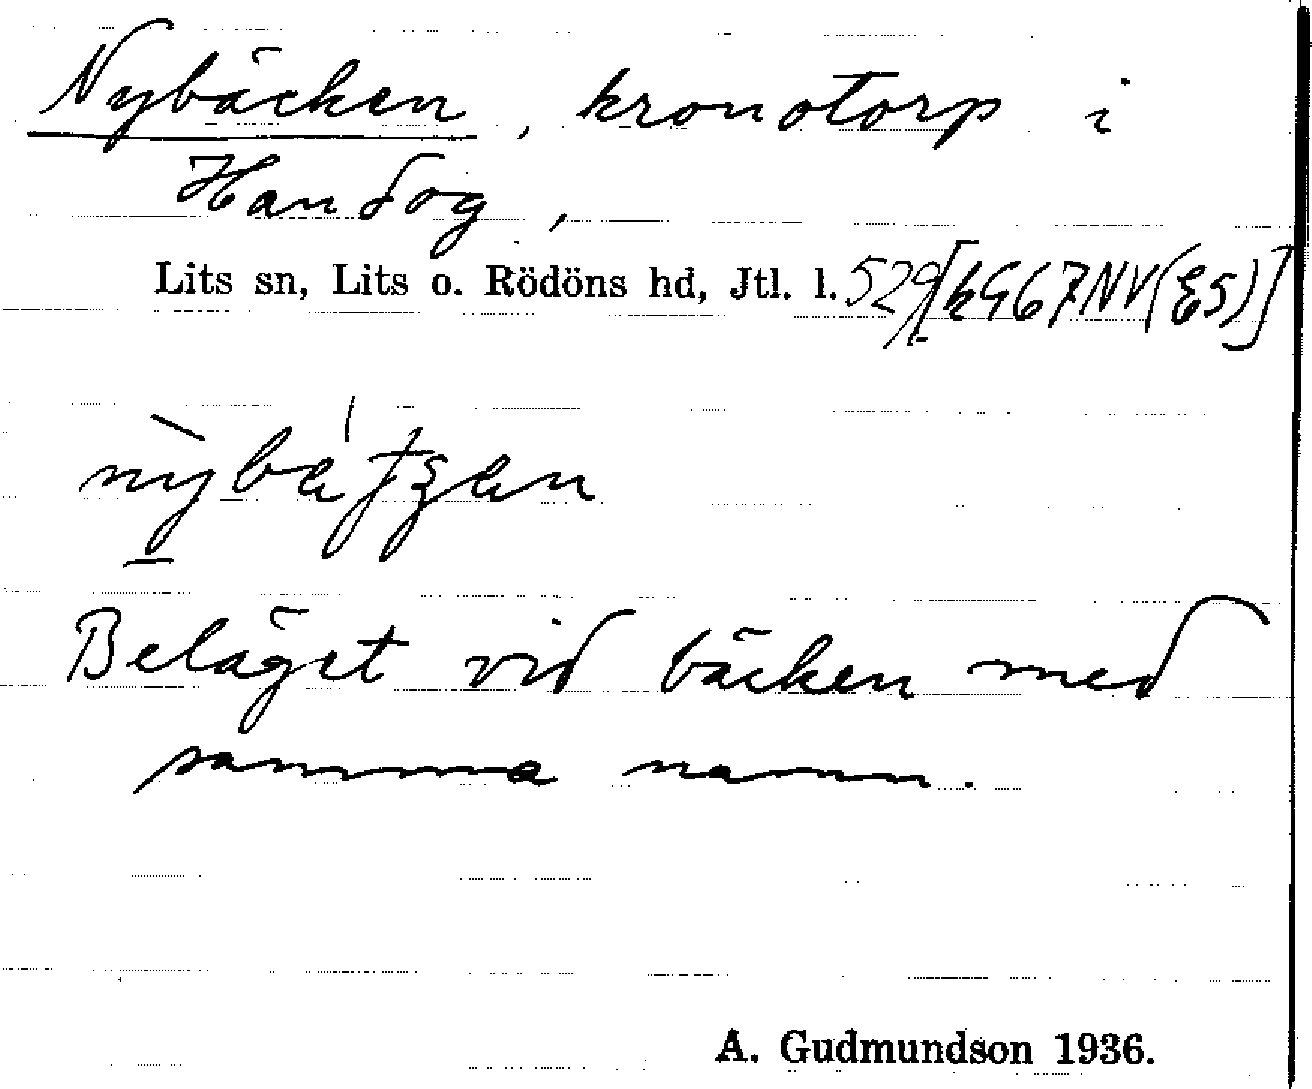 Nybäcken, kronotorp i
Handog,
Lits sn, Lits o. Rödöns hd, Jtl. l.
Beläget vid bäcken med
samma namn.
A. Gudmundson 1936.